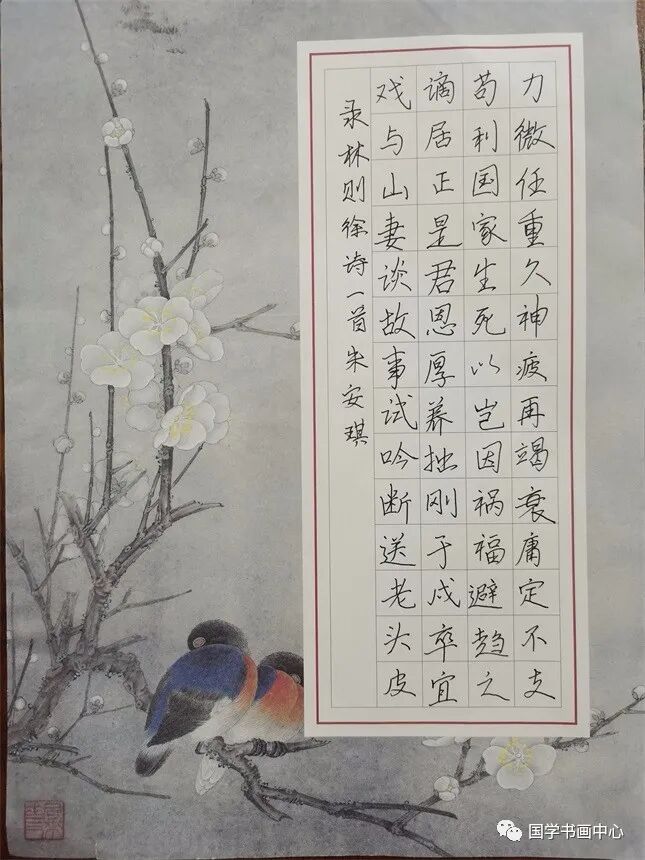 力微任重久神疲再竭衰庸定不支
苟利国家生死以岂因祸福避趋之
谪居正是君恩厚养拙刚于戍卒宜
戏与山妻谈故事试吟断送老头皮
录林则徐诗一首朱安琪
国学书画中心